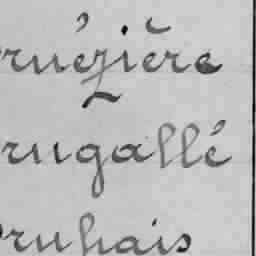 ruézière
rugallé
ruhais